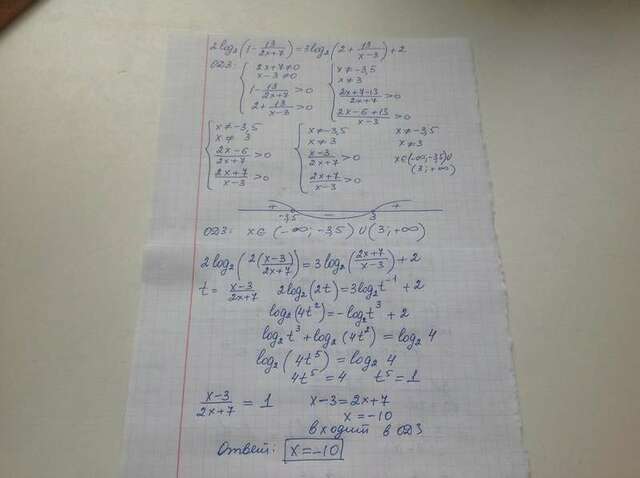 2log₂(1-13/(2x+7))=3log₂(2+13/(x-3))+2
ОДЗ: { 2x+7≠0 { x≠-3,5
x-3≠0 x≠3
1-13/(2x+7)>0 (2x+7-13)/(2x+7)>0
2+13/(x-3)>0 (2x-6+13)/(x-3)>0
{ x≠-3,5 { x≠-3,5 x≠-3,5
x≠3 x≠3 x≠3
(2x-6)/(2x+7)>0 (x-3)/(2x+7)>0 x∈(-∞;-3,5)∪
(2x+7)/(x-3)>0 (2x+7)/(x-3)>0 (3;+∞)
+ - +
-3,5 3
ОДЗ: x∈(-∞;-3,5)∪(3;+∞)
2log₂(2(x-3)/(2x+7))=3log₂((2x+7)/(x-3))+2
t=(x-3)/(2x+7) 2log₂(2t)=3log₂t⁻¹+2
log₂(4t²)=-log₂t³+2
log₂t³+log₂(4t²)=log₂4
log₂(4t⁵)=log₂4
4t⁵=4 t⁵=1
(x-3)/(2x+7)=1 x-3=2x+7
x=-10
входит в ОДЗ
Ответ: x=-10